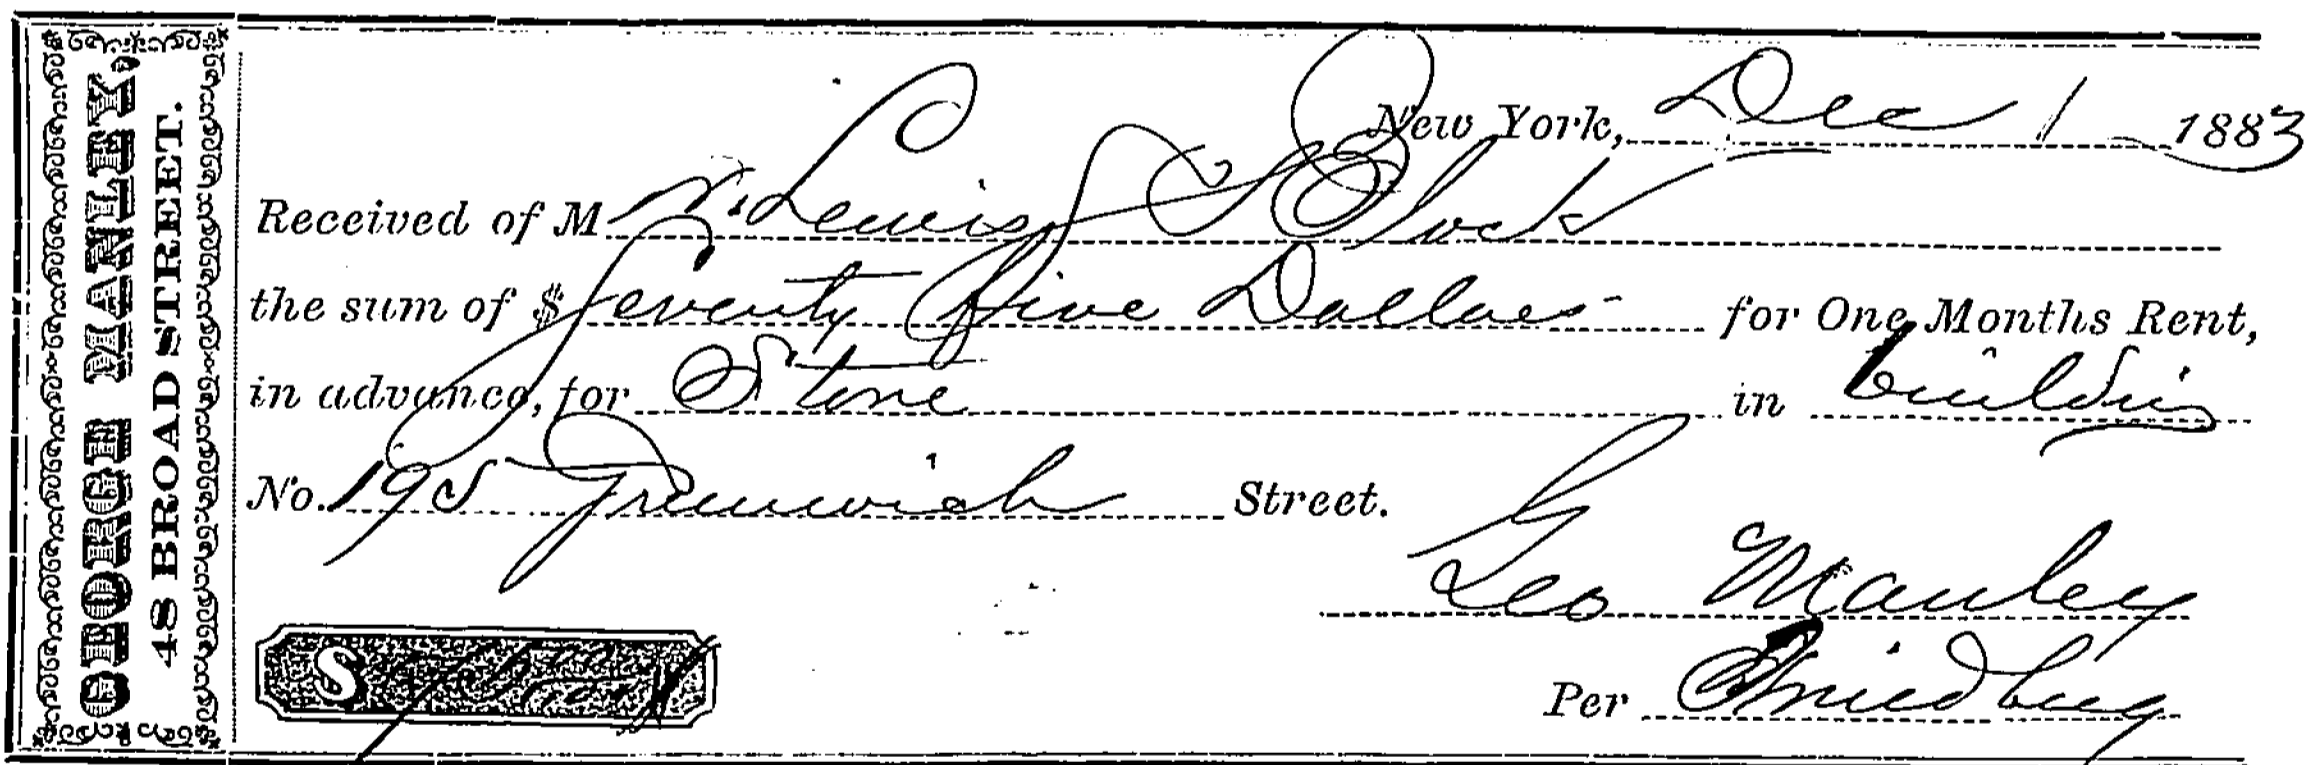 GEORGE MANLEY,
48 BROAD STREET.
New York, Dec 1 1883
Received of Mr. Lewis S Block
the sum of $ Seventy five Dollars for One Months Rent,
in advance, for Store in building
No. 195 Greenwich Street.
Geo Manley
$ 75
Per